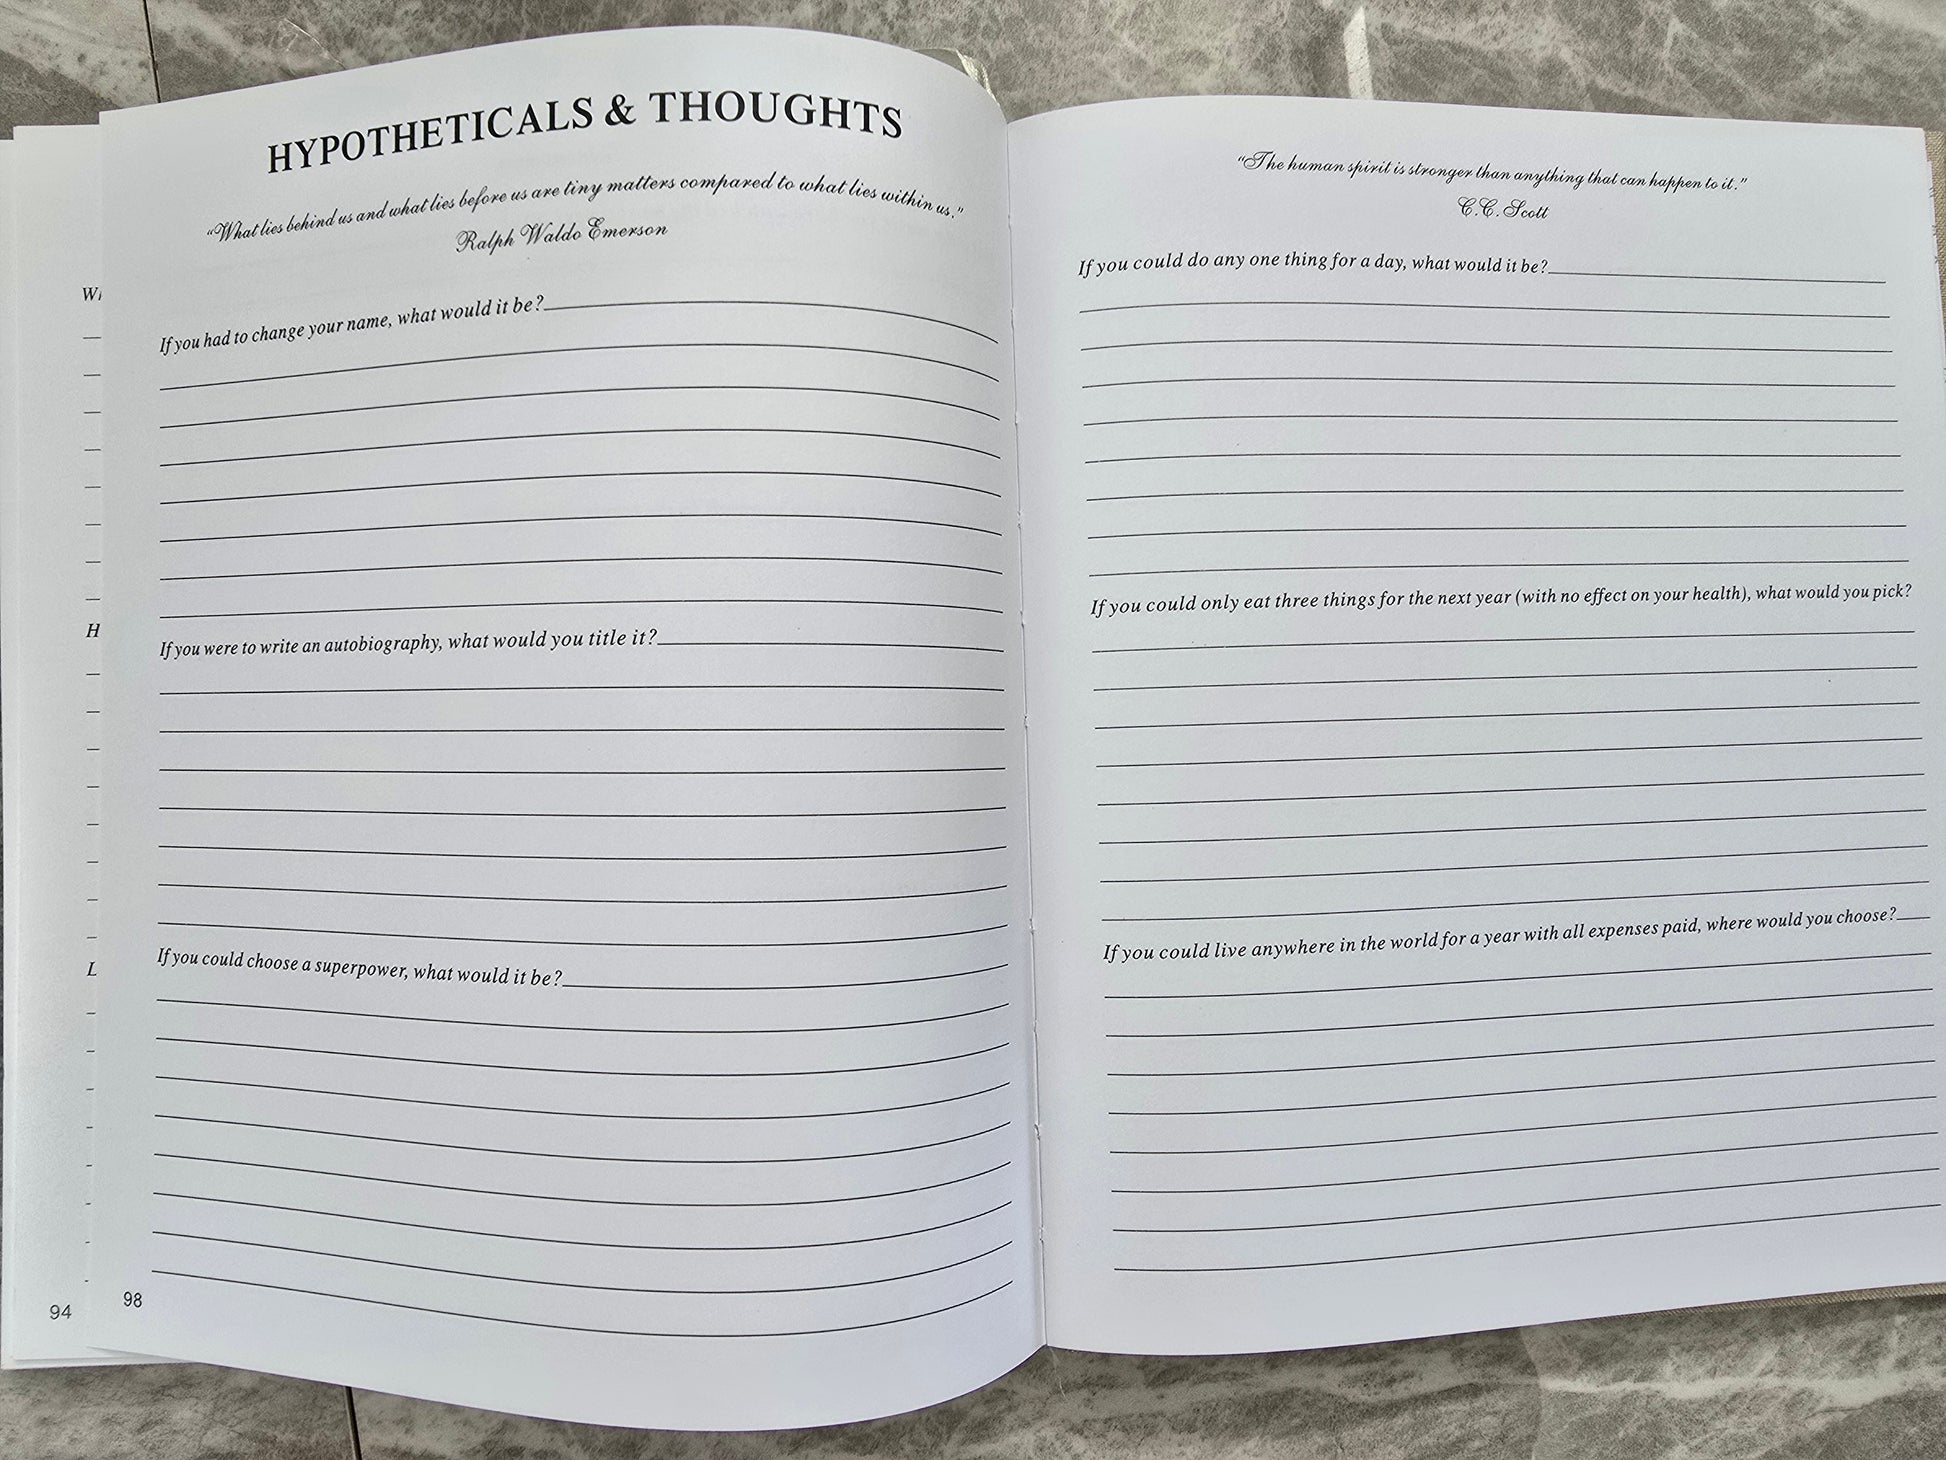 HYPOTHETICALS & THOUGHTS
"What lies behind us and what lies before us are tiny matters compared to what lies within us."
Ralph Waldo Emerson
If you had to change your name, what would it be?
If you were to write an autobiography, what would you title it?
If you could choose a superpower, what would it be?
98
94
H
L
"The human spirit is stronger than anything that can happen to it."
C.C. Scott
If you could do any one thing for a day, what would it be?
If you could only eat three things for the next year (with no effect on your health), what would you pick?
If you could live anywhere in the world for a year with all expenses paid, where would you choose?